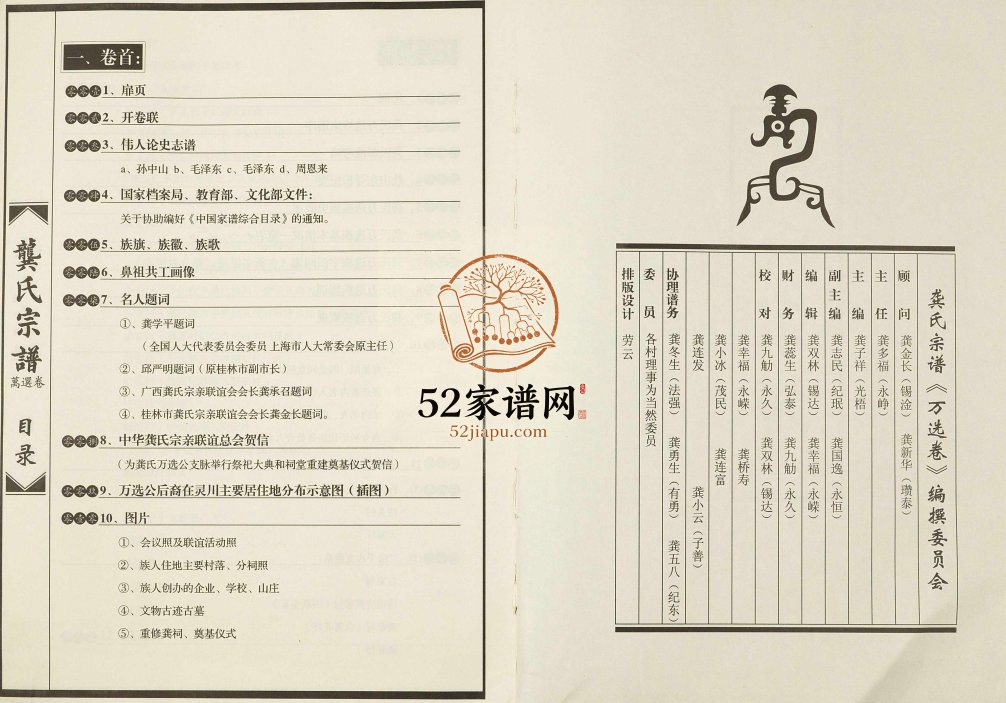 龔氏宗譜
萬選卷
目录
一、卷首:
零零壹 1、扉页
零零贰 2、开卷联
零零叁 3、伟人论史志谱
a、孙中山 b、毛泽东 c、毛泽东 d、周恩来
零零肆 4、国家档案局、教育部、文化部文件:
关于协助编好《中国家谱综合目录》的通知。
零零伍 5、族旗、族徽、族歌
零零陆 6、鼻祖共工画像
零零柒 7、名人题词
①、龚学平题词
(全国人大代表委员会委员 上海市人大常委会原主任)
②、邱严明题词(原桂林市副市长)
③、广西龚氏宗亲联谊会会长龚承召题词
④、桂林市龚氏宗亲联谊会会长龚金长题词。
零零捌 8、中华龚氏宗亲联谊总会贺信
(为龚氏万选公支脉举行祭祀大典和祠堂重建奠基仪式贺信)
零零玖 9、万选公后裔在灵川主要居住地分布示意图(插图)
零壹零 10、图片
①、会议照及联谊活动照
②、族人住地主要村落、分祠照
③、族人创办的企业、学校、山庄
④、文物古迹古墓
⑤、重修龚祠、奠基仪式
52家谱网
52jiapu.com
龚氏宗谱《万选卷》编撰委员会
顾问 龚金长(锡淦) 龚新华(瓒泰)
主任 龚多福(永峥)
主编 龚子祥(光梧)
副主编 龚志民(纪珉) 龚国逸(永恒)
编辑 龚双林(锡达) 龚幸福(永嵘)
财务 龚蕊生(弘泰) 龚九勈(永久)
校对 龚九勈(永久) 龚双林(锡达)
龚幸福(永嵘) 龚桥寿
龚小冰(茂民) 龚连富
龚连发 龚小云(子善)
协理谱务 龚冬生(法强) 龚勇生(有勇) 龚五八(纪东)
委员 各村理事为当然委员
排版设计 劳云